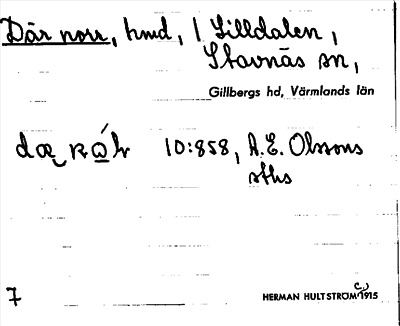 Där norr, hmd, i Lilldalen,
Stavnäs sn,
Gillbergs hd, Värmlands län
10:858, A.E. Olssons
sths
7
HERMAN HULTSTRÖM 1915